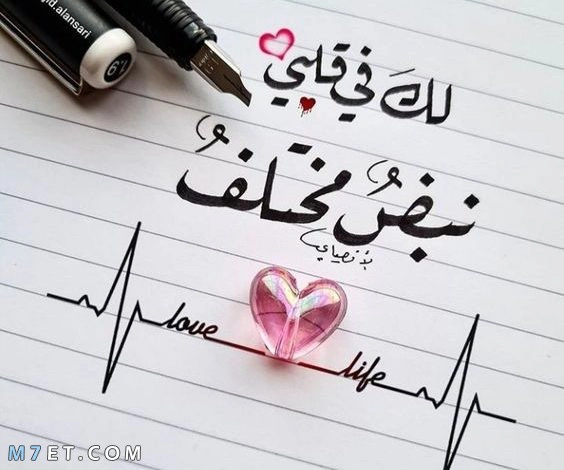 jid.alansari
6.2
لكَ في قلبي
نبضٌ مختلفُ
love
life
M7ET.COM